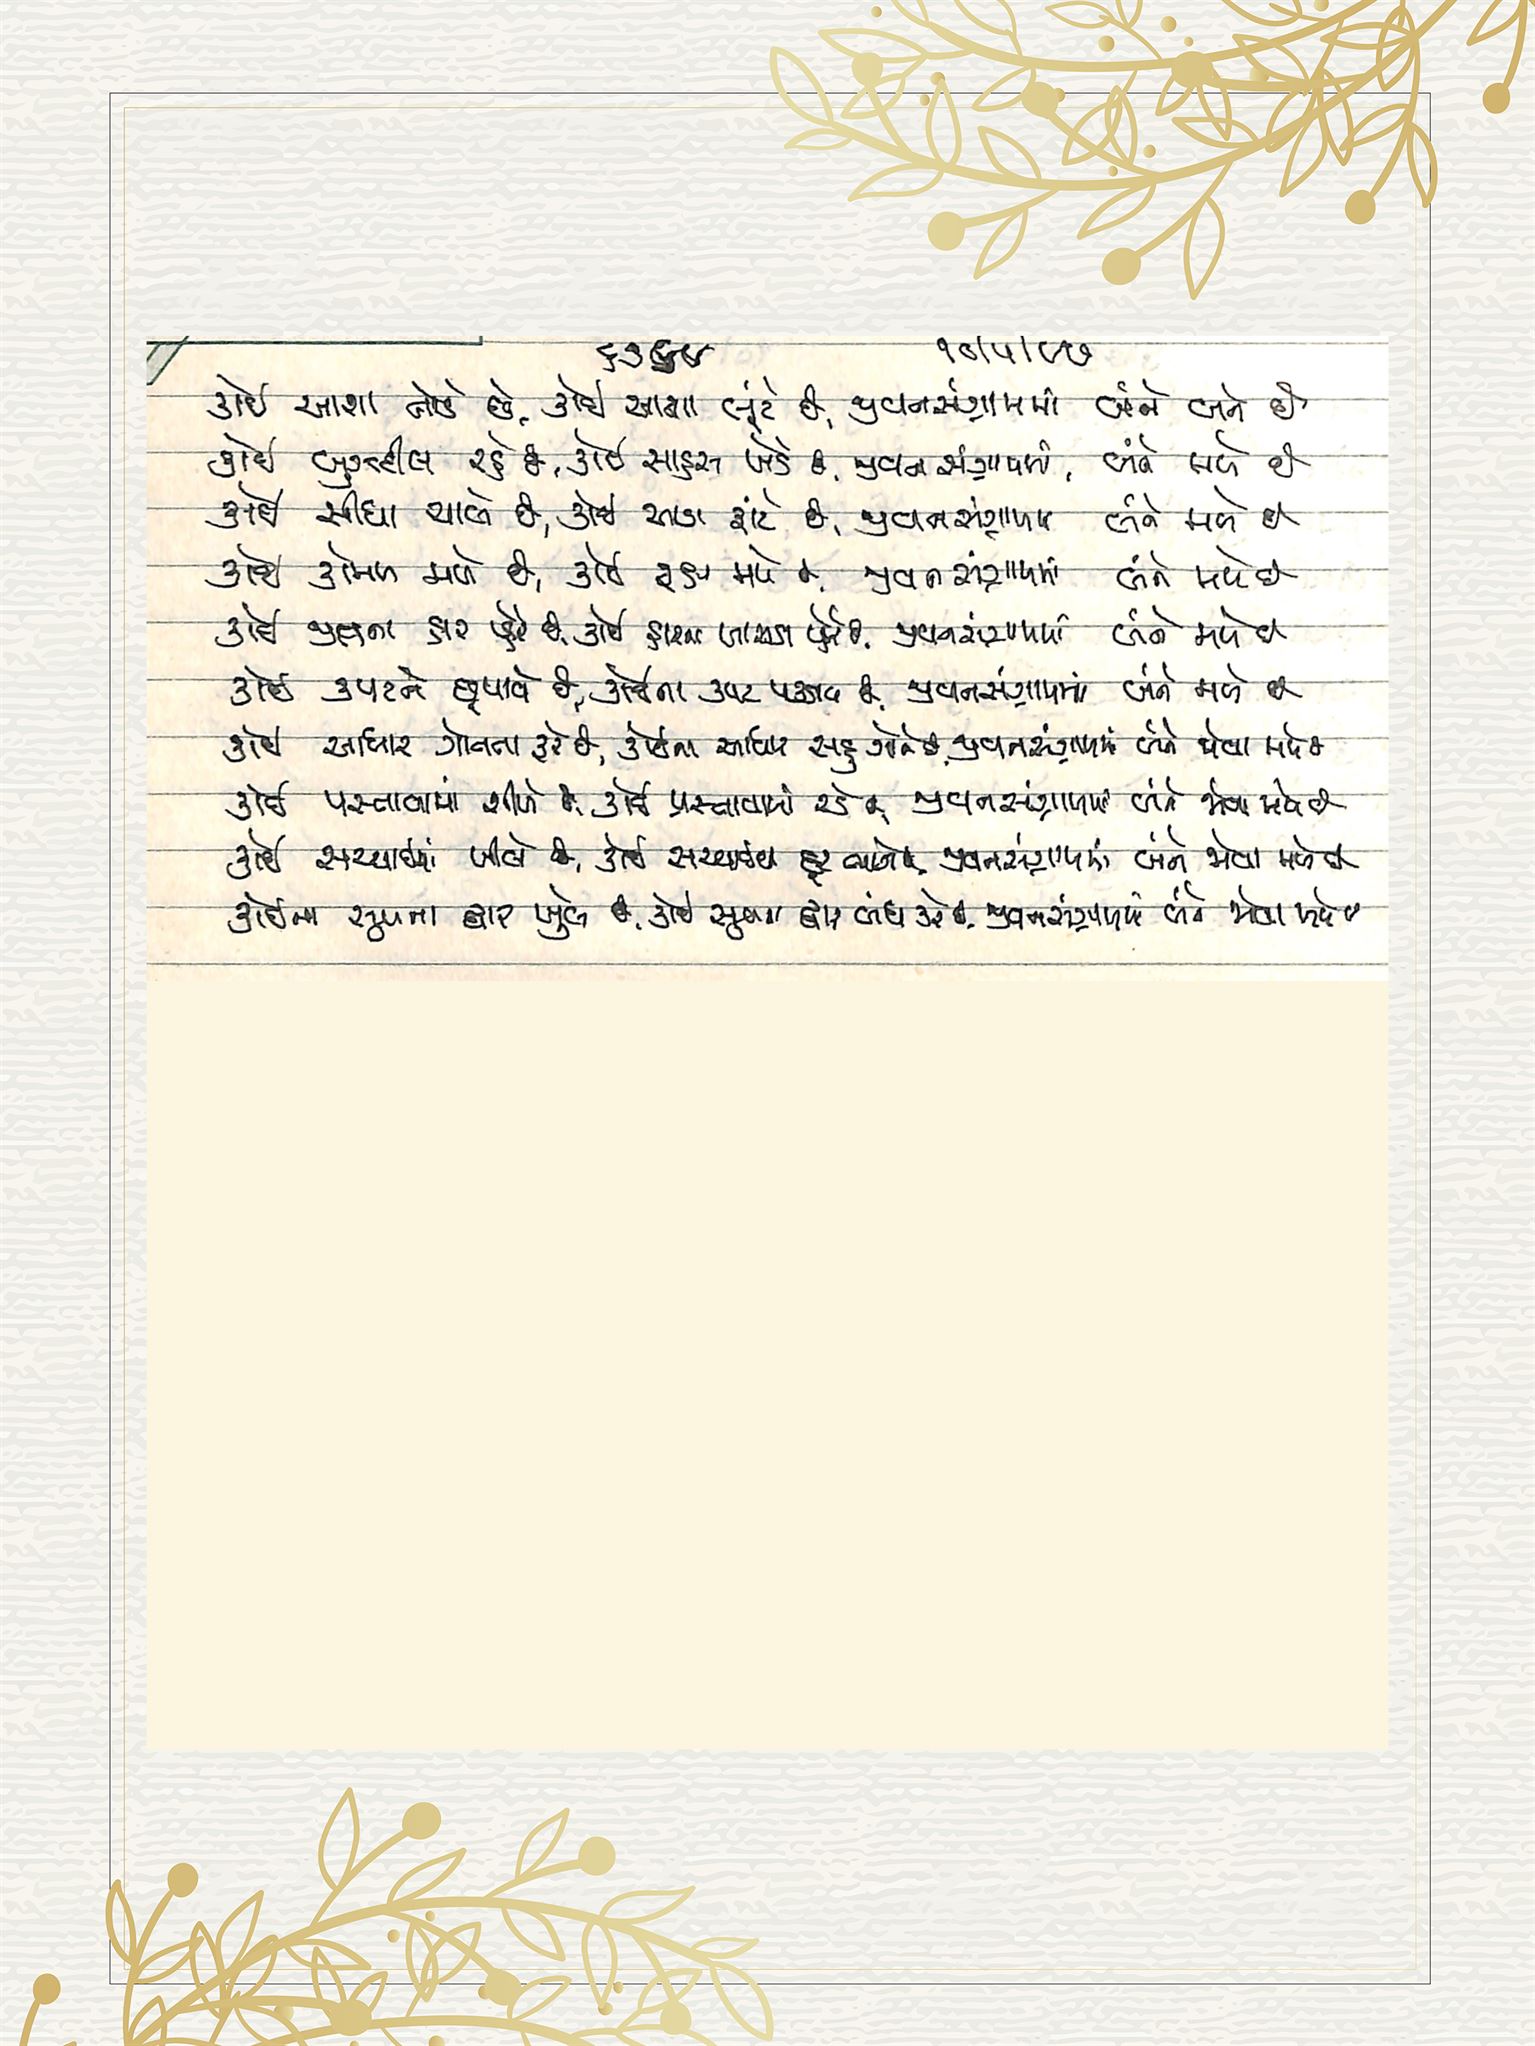 ૧૦/૫/૮૭
કોઈ આશા જોડે છે, કોઈ આશા લૂંટે છે, જીવનસંગ્રામમાં બંને બને છે
કોઈ બુઝદીલ રહે છે, કોઈ સાહસ ખેડે છે, જીવનસંગ્રામમાં, બંને મળે છે
કોઈ સીધા ચાલે છે, કોઈ આડા ફાંટે છે, જીવનસંગ્રામમાં બંને મળે છે
કોઈ કોમળ મળે છે, કોઈ રૂક્ષ મળે છે, જીવનસંગ્રામમાં બંને મળે છે
કોઈ જીતના હાર પહેરે છે, કોઈ હારના પહેરે છે, જીવનસંગ્રામમાં બંને મળે છે
કોઈ કપટને છૂપાવે છે, કોઈના કપટ પકડાય છે, જીવનસંગ્રામમાં બંને મળે છે
કોઈ આધાર ગોતતા ફરે છે, કોઈના આધાર સહુ ગોતે છે, જીવનસંગ્રામમાં બંને એવા મળે છે
કોઈ પસ્તાવામાં શીખે છે, કોઈ પસ્તાવામાં રડે છે, જીવનસંગ્રામમાં બંને એવા મળે છે
કોઈ સચ્ચાઈમાં ખીલે છે, કોઈ સચ્ચાઈથી દૂર ભાગે છે, જીવનસંગ્રામમાં બંને એવા મળે છે
કોઈના સુખના દ્વાર ખુલે છે, કોઈ સુખના દ્વાર બંધ કરે છે, જીવનસંગ્રામમાં બંને એવા મળે છે